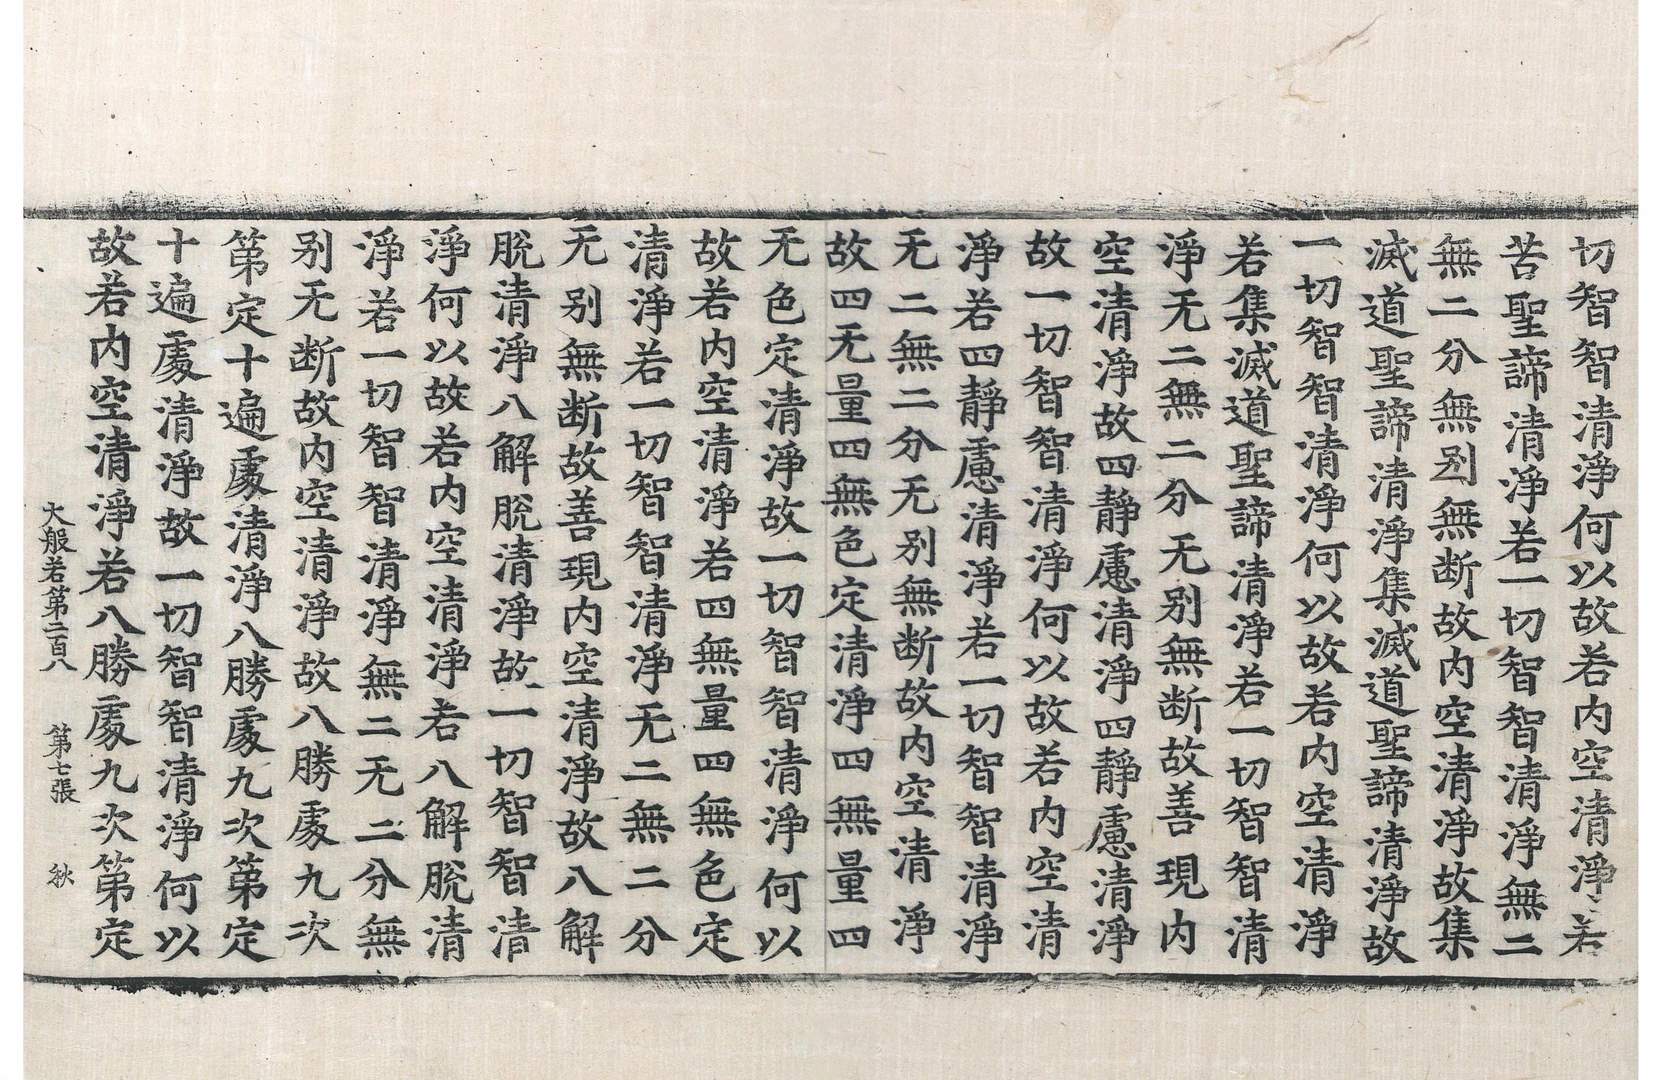 切智智清淨何以故若内空清淨若
苦聖諦清淨若一切智智清淨無二
無二分無别無断故内空清淨故集
滅道聖諦清淨集滅道聖諦清淨故
一切智智清淨何以故若内空清淨
若集滅道聖諦清淨若一切智智清
淨无二無二分无别無断故善現内
空清淨故四靜慮清淨四靜慮清淨
故一切智智清淨何以故若内空清
淨若四靜慮清淨若一切智智清淨
无二無二分无别無断故内空清淨
故四无量四無色定清淨四無量四
无色定清淨故一切智智清淨何以
故若内空清淨若四無量四無色定
清淨若一切智智清淨无二無二分
无别無断故善現内空清淨故八解
脫清淨八解脫清淨故一切智智清
淨何以故若内空清淨若八解脫清
淨若一切智智清淨無二无二分無
别无断故内空清淨故八勝處九次
第定十遍處清淨八勝處九次第定
十遍處清淨故一切智智清淨何以
故若内空清淨若八勝處九次第定
大般若第二百八 第七張 秋